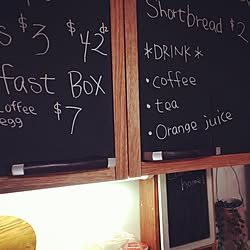 s $3 $42 dz
fast Box
coffee
egg
$7
Shortbread $2
*DRINK*
• coffee
• tea
• Orange juice